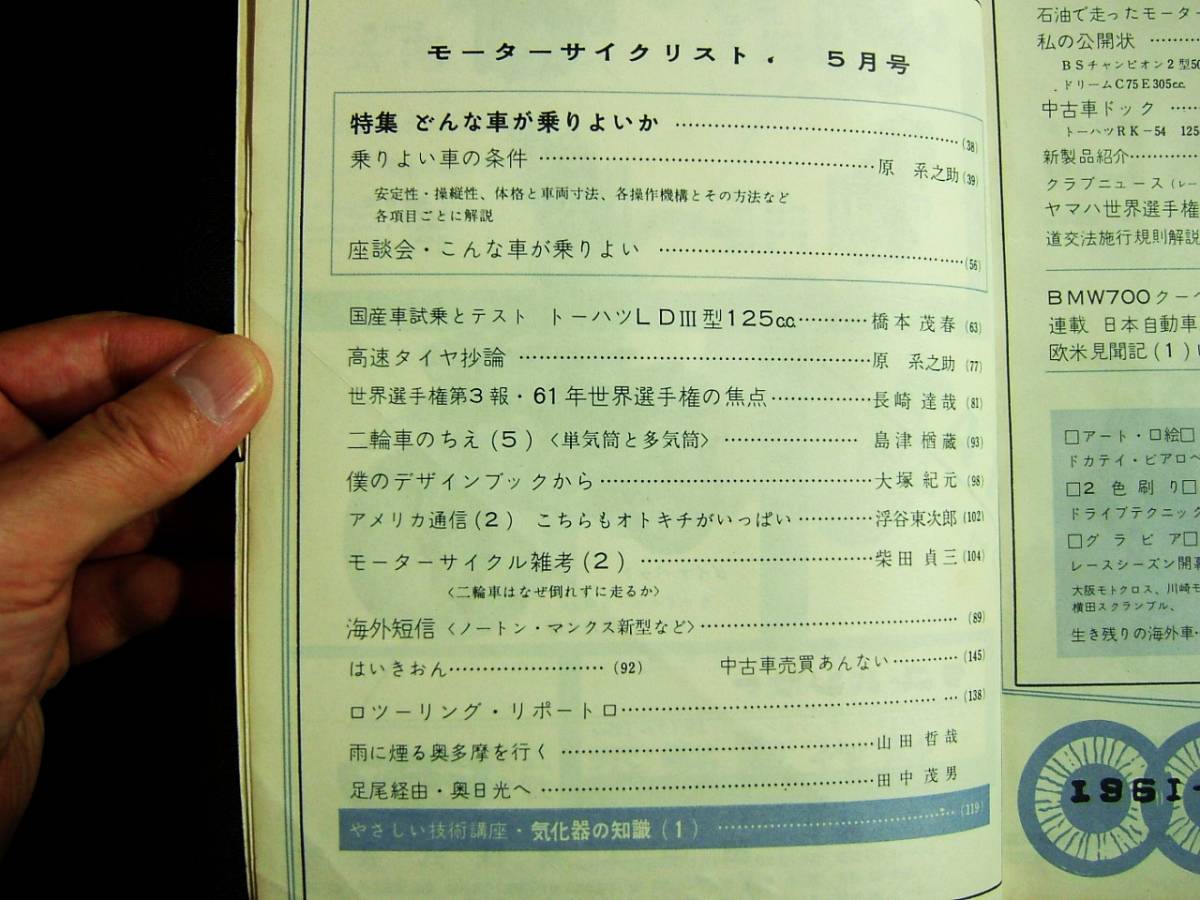 モーターサイクリスト. 5月号
特集 どんな車が乗りよいか ……………………………… (38)
乗りよい車の条件 ……………………………… 原 系之助 (39)
安定性・操縦性、体格と車両寸法、各操作機構とその方法など
各項目ごとに解説
座談会・こんな車が乗りよい ……………………………… (56)
国産車試乗とテスト トーハツLDⅢ型125cc………… 橋本茂春 (63)
高速タイヤ抄論 ……………………………… 原 系之助 (77)
世界選手権第3報・61年世界選手権の焦点…………… 長崎達哉 (81)
二輪車のちえ(5)〈単気筒と多気筒〉 ………………… 島津楢蔵 (93)
僕のデザインブックから……………………………… 大塚紀元 (98)
アメリカ通信(2) こちらもオトキチがいっぱい………… 浮谷東次郎 (102)
モーターサイクル雑考(2) …………………………… 柴田貞三 (104)
〈二輪車はなぜ倒れずに走るか〉
海外短信〈ノートン・マンクス新型など〉……………………………… (89)
はいきおん…………………… (92) 中古車売買あんない………… (145)
ロツーリング・リポートロ……………………………… (138)
雨に煙る奥多摩を行く ……………………………… 山田哲哉
足尾経由・奥日光へ ……………………………… 田中茂男
やさしい技術講座・気化器の知識(1) ……………………………… (119)
石油で走ったモータ
私の公開状 ………
BSチャンピオン2型50
ドリームC75E305cc.
中古車ドック ……
トーハツRK-54 125
新製品紹介…………
クラブニュース(レー
ヤマハ世界選手権
道交法施行規則解説
BMW700クー
連載 日本自動車
欧米見聞記(1)
□アート・口絵□
ドカテイ・ビアロ
□2色刷り□
ドライブテクニック
□グラビア□
レースシーズン開幕
大阪モトクロス、川崎モ
横田スクランブル、
生き残りの海外車…
1961-